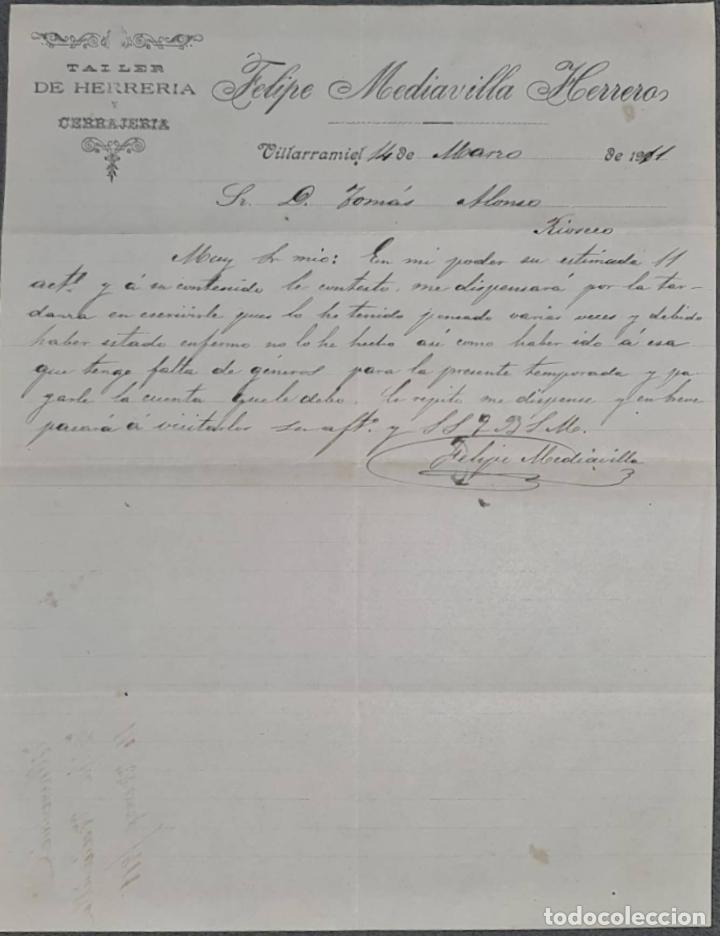 TALLER
DE HERRERIA
Y
CERRAJERIA
Felipe Mediavilla Herrero
Villarramiel 14 de Marzo de 1911
Sr. D. Tomás Alonso
Rioseco
Muy Sr mio: En mi poder su estimada 11
actl. y á su contenido le contesto, me dispensará por la tar-
danza en escrivirle pues lo he tenido pensado varias veces y debido
haber estado enfermo no lo he hecho asi como haber ido á esa
que tengo falta de géneros para la presente temporada y pa-
garle la cuenta que le debo. Le repito me dispense y en breve
pasará á visitarles su afto. y S S Q B S M.
Felipe Mediavilla
todocoleccion